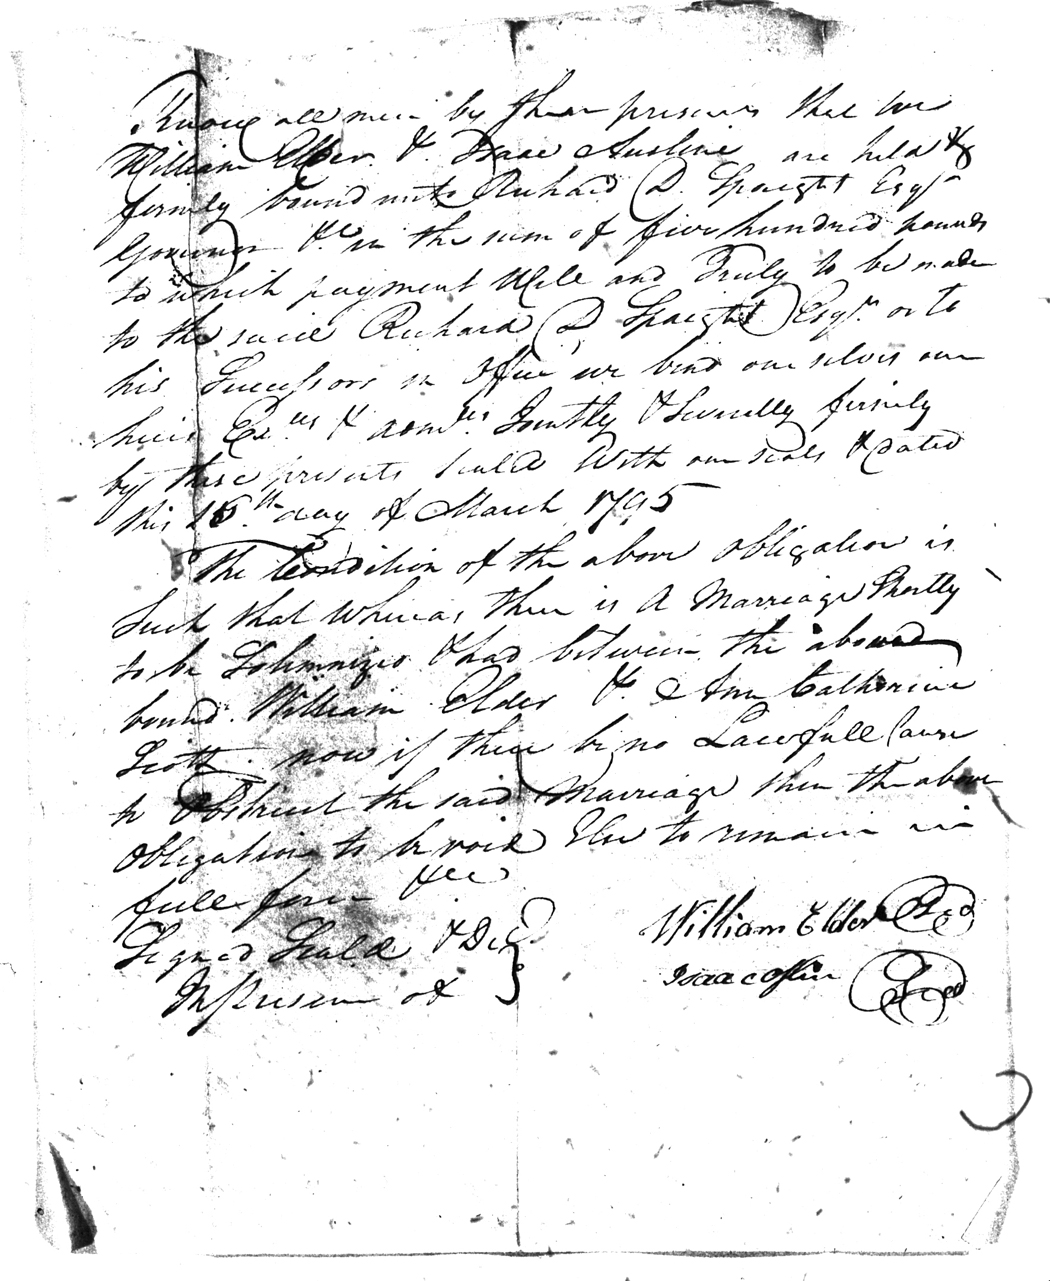 Know all men by these presents that we
William Elder & Isaac Austine are held &
firmly bound unto Richard D. Spaight Esqr
Governor &c in the sum of five hundred pounds
to which payment Well and Truly to be made
to the said Richard D Spaight Esqr. or to
his Successors in Office we bind ourselves our
heirs Exrs & admrs Jointly & Severally firmly
by these presents Seald With our seals & dated
this 15th day of March 1795
The Condition of the above Obligation is
Such that Whereas there is A Marriage Shortly
to be Solemnized & had between the above
bound William Elder & Ann Catherine
Scott now if there be no Lawfull Cause
to Obstruct the said Marriage then the above
Obligation to be void Else to remain in
full force &c
Signed Seald & Dd
In presence of
William Elder Seal
Isaac Seal